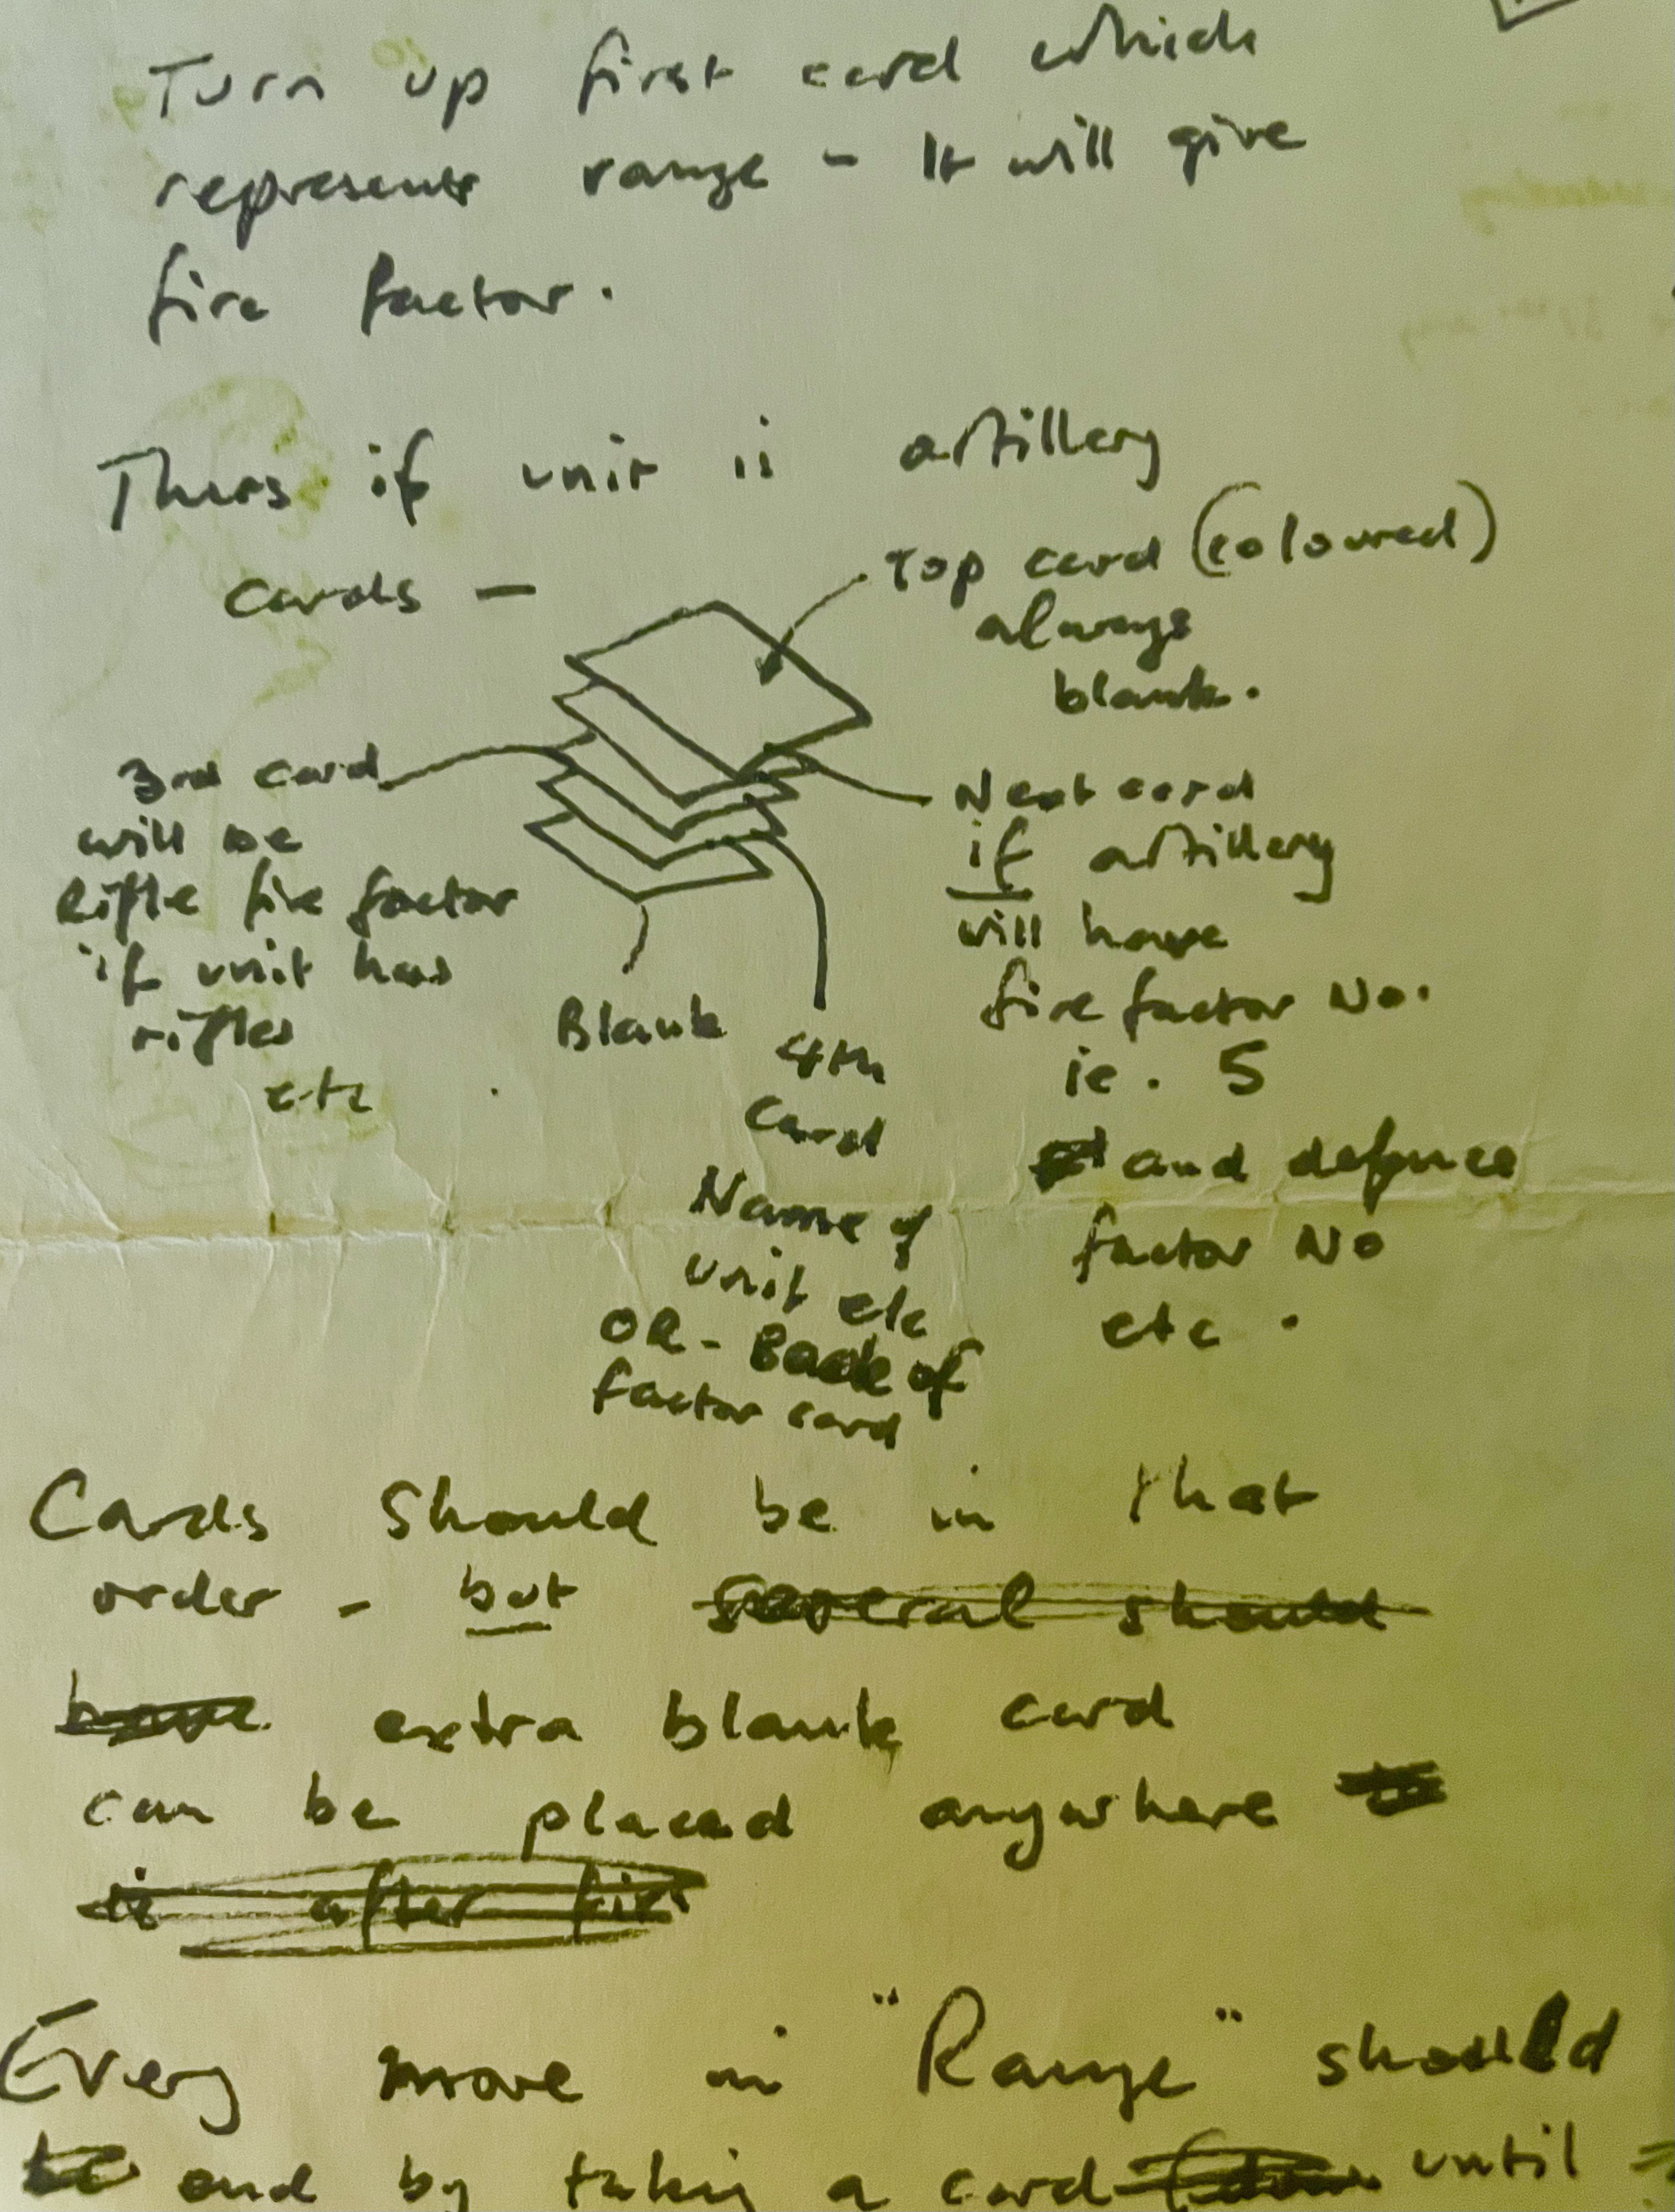 Turn up first card which
represents range - It will give
fire factor.
Thus if unit is artillery
cards -
Top card (coloured)
always
blank.
3rd card
will be
Rifle fire factor
if unit has
rifles
etc
Next card
if artillery
will have
fire factor No.
ie. 5
and defence
factor No
etc.
Blank
4th
Card
Name of
unit etc
OR - Back of
factor card
Cards should be in that
order - but several should
have extra blank card
can be placed anywhere
after
Every move in "Range" should
be end by taking a card until